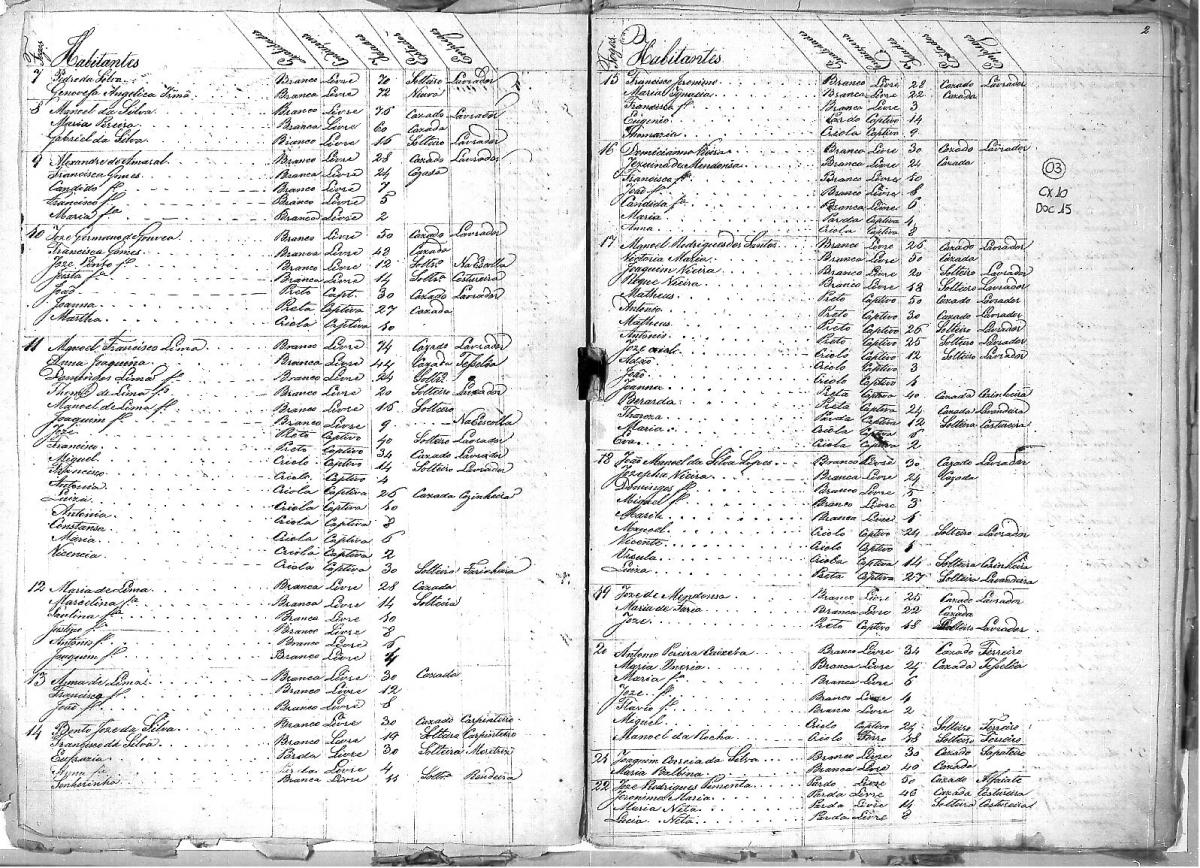 Fogos Habitantes Qualidades Condiçoens Idades Estados Empregos
7 Pedro da Silva Branco Livre 70 Solteiro Lavrador
Genovefa Angelica Irmã Branca Livre 72 Viuva
8 Manoel da Silva Branco Livre 76 Cazado Lavrador
Maria Pereira Branca Livre 60 Cazada
Gabriel da Silva Branco Livre 16 Solteiro Lavrador
9 Alexandre do Amaral Branco Livre 28 Cazado Lavrador
Francisca Gomes Branca Livre 24 Cazada
Candido fº Branco Livre 7
Francisco fº Branco Livre 5
Maria fª Branca Livre 2
10 Joze Germano de Gouvea Branco Livre 50 Cazado Lavrador
Francisca Gomes Branca Livre 43 Cazada
Joze Pinto fº Branco Livre 12 Soltrº Na Escolla
Justa fª Branca Livre 14 Soltrª Costureira
João Preto Capt. 30 Cazado Lavrador
Joanna Preta Captiva 27 Cazada
Martha Criola Captiva 10
11 Manoel Francisco Lima Branco Livre 74 Cazado Lavrador
Anna Joaquina Branca Livre 44 Cazada
Domingos Lima fº Branco Livre 24 Soltrº
Thomé de Lima fº Branco Livre 20 Solteiro Lavrador
Manoel de Lima fº Branco Livre 16 Solteiro
Joaquim fº Branco Livre 9 Na Escolla
Joze Preto Captivo 40 Solteiro Lavrador
Francisco Preto Captivo 34 Cazado Lavrador
Miguel Criolo Captivo 14 Solteiro Lavrador
Francisco Criolo Captivo 4
Antonia Criola Captiva 26 Cazada Cozinheira
Luiza Criola Captiva 10
Antonia Criola Captiva 8
Constansa Criola Captiva 6
Maria Criola Captiva 2
Vicencia Criola Captiva 30 Solteira
12 Maria de Lima Branca Livre 28 Cazada
Marcelina fª Branca Livre 14 Solteira
fª Branca Livre 10
Justino fº Branco Livre 8
Antonio fº Branco Livre 6
Joaquim fº Branco Livre 4
13 Anna de Lima Branca Livre 30 Cazada
Francisco fº Branco Livre 12
João fº Branco Livre 6
14 Bento Joze da Silva Branco Livre 30 Cazado Carpinteiro
Francisco da Silva Branco Livre 19 Solteiro Carpinteiro
Eufrazia Parda Livre 30 Solteira
fª Parda Livre 4
Senhorinha Branca Livre 11 Soltrª Rendeira
2
Fogos Habitantes Qualidades Condiçoens Idades Estados Empregos
15 Francisco Jeronimo Branco Livre 28 Cazado Lavrador
Maria Ignacia Branca Livre 22 Cazada
Francisca fª Branca Livre 3
Eugenio Pardo Captivo 14
Thomazia Criola Captiva 9
16 Domiciano Vieira Branco Livre 30 Cazado Lavrador
Jezuina de Mendonsa Branca Livre 24 Cazada
Francisca fª Branca Livre 10
João fº Branco Livre 8
Candida fª Branca Livre 6
Maria Parda Captiva 4
Anna Criola Captiva 8
17 Manoel Rodrigues dos Santos Branco Livre 26 Cazado Lavrador
Victoria Maria Branca Livre 50 Cazada
Joaquim Vieira Branco Livre 20 Solteiro Lavrador
Roque Vieira Branco Livre 18 Solteiro Lavrador
Matheus Preto Captivo 50 Cazado Lavrador
Antonio Preto Captivo 30 Cazado Lavrador
Matheus Preto Captivo 26 Solteiro Lavrador
Antonio Preto Captivo 25 Solteiro Lavrador
Joze criolo Criolo Captivo 12 Solteiro Lavrador
Adão Criolo Captivo 3
João Criolo Captivo 4
Joanna Preta Captiva 40 Cazada Cozinheira
Berarda Preta Captiva 24 Cazada Lavandeira
Thereza Parda Captiva 12 Solteira Costureira
Maria Criola Captiva 6
Eva Criola Captiva 2
18 João Manoel da Silva Lopes Branco Livre 30 Cazado Lavrador
Jozepha Vieira Branca Livre 24 Cazada
Domingos fº Branco Livre 5
Miguel fº Branco Livre 3
Maria Branca Livre 1
Manoel Criolo Captivo 24 Solteiro Lavrador
Vicente Criolo Captivo 6
Ursula Criola Captiva 14 Solteira Cozinheira
Luiza Preta Captiva 27 Solteira Lavandeira
19 Joze de Mendonsa Branco Livre 25 Cazado Lavrador
Maria de Faria Branca Livre 22 Cazada
Joze Preto Captivo 18 Solteiro Lavrador
20 Antonio Pereira Branco Livre 34 Cazado Ferreiro
Maria Branca Livre 25 Cazada
Maria fª Branca Livre 6
Joze fº Branco Livre 4
Flavio fº Branco Livre 2
Miguel Criolo Captivo 24 Solteiro Ferreiro
Manoel da Rocha Criolo Forro 18 Solteiro Ferreiro
21 Joaquim Correia da Silva Branco Livre 30 Cazado Sapateiro
Maria Balbina Branca Livre 40 Cazada
22 Joze Rodrigues Pementa Pardo Livre 50 Cazado Alfaiate
Jeronima Maria Parda Livre 46 Cazada Costureira
Maria Neta Parda Livre 14 Solteira Costureira
Lucia Neta Parda Livre 8
03
CX 10
DOC 15